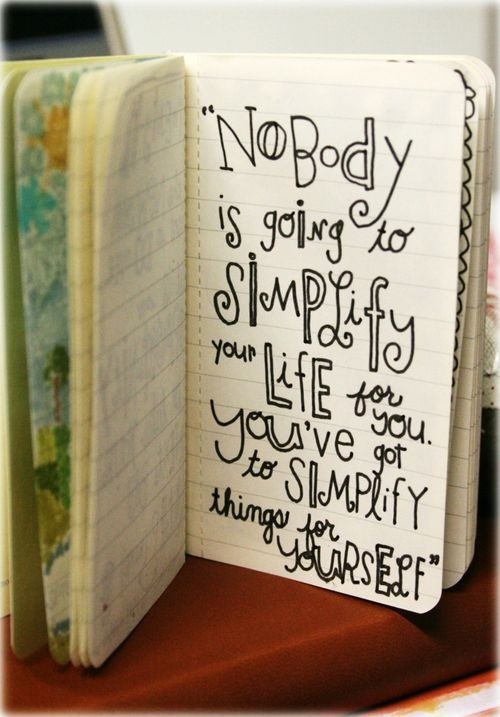 "NoBody
is going to
SiMPLify
your LifE for
you.
you've got
to SIMPlifY
things for
YOURSELF"